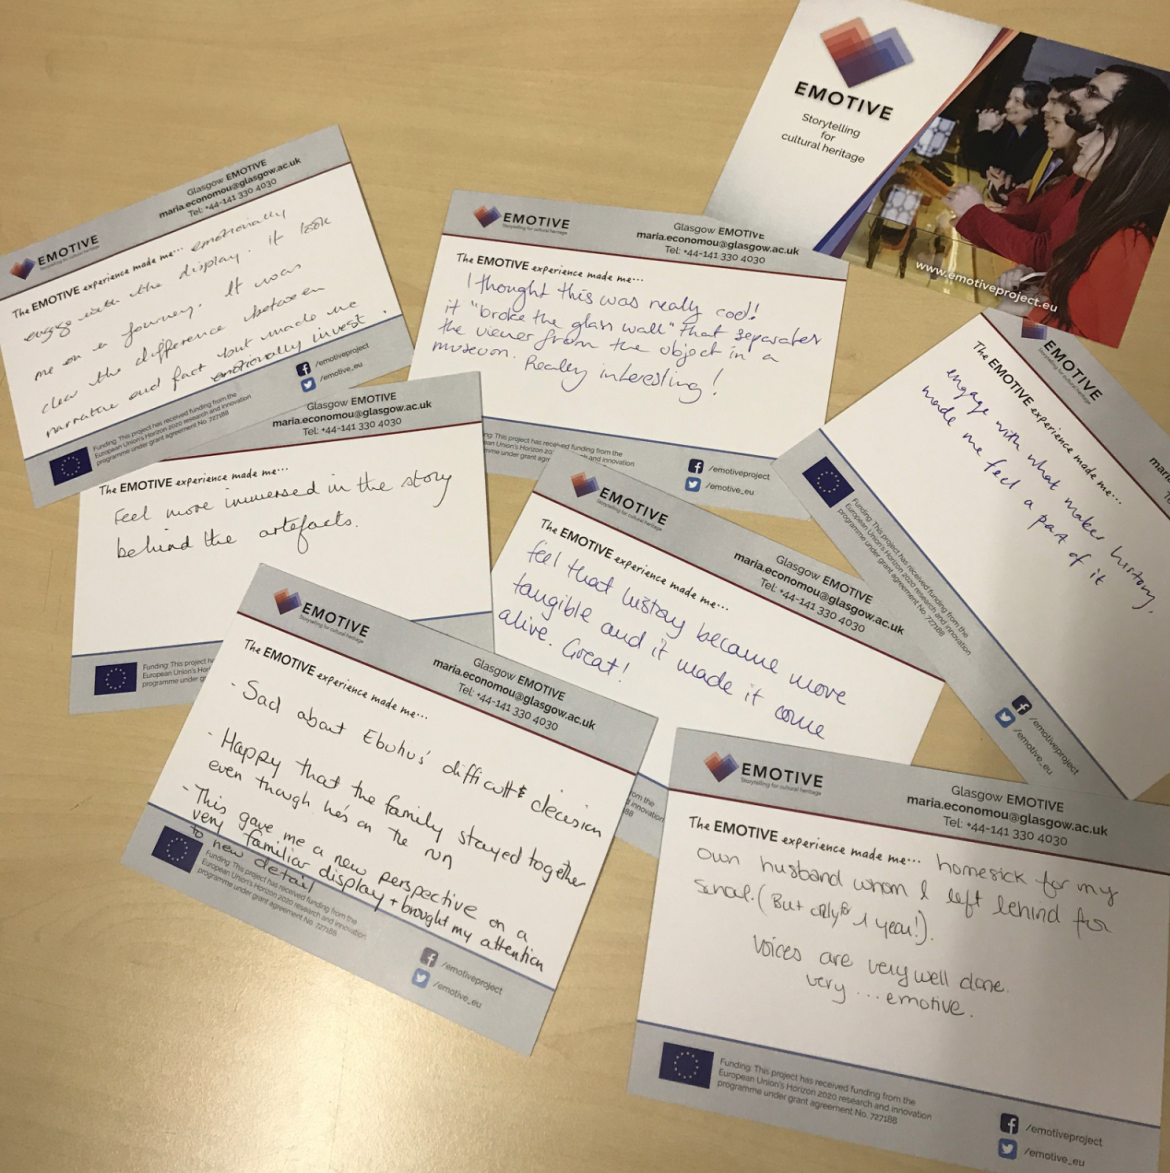 EMOTIVE
Storytelling
for
cultural heritage
www.emotiveproject.eu
EMOTIVE
Storytelling for cultural heritage
Glasgow EMOTIVE
maria.economou@glasgow.ac.uk
Tel: +44-141 330 4030
The EMOTIVE experience made me... emotionally
engage with the display. It took
me on a journey. It was
clear the difference between
narrative and fact but made me
emotionally invest.
/emotiveproject
/emotive_eu
Funding: This project has received funding from the
European Union's Horizon 2020 research and innovation
programme under grant agreement No. 727188
EMOTIVE
Storytelling for cultural heritage
Glasgow EMOTIVE
maria.economou@glasgow.ac.uk
Tel: +44-141 330 4030
The EMOTIVE experience made me...
I thought this was really cool!
it "broke the glass wall" that separates
the viewer from the object in a
museum. Really interesting!
ng from the
research and innovation
/emotiveproject
/emotive_eu
Glasgow EMOTIVE
maria.economou@glasgow.ac.uk
Tel: +44-141 330 4030
The EMOTIVE experience made me...
Feel more immersed in the story
behind the artefacts.
Funding: This project h
European Union's Hor
programme under g
The EMOTIVE experience made me...
engage with what makes history,
made me feel a part of it
Funding: This project has received funding from the
European Union's Horizon 2020 research and innovation
programme under grant agreement No. 727188
/emotiveproject
/emotive_eu
EMOTIVE
Storytelling for cultural heritage
Glasgow EMOTIVE
maria.economou@glasgow.ac.uk
Tel: +44-141 330 4030
The EMOTIVE experience made me...
feel that history became more
tangible and it made it come
alive. Great!
EMOTIVE
Storytelling for cultural heritage
Glasgow EMOTIVE
maria.economou@glasgow.ac.uk
Tel: +44-141 330 4030
The EMOTIVE experience made me...
- Sad about Ebuhu's difficult decision
- Happy that the family stayed together
even though he's on the run
- This gave me a new perspective on a
very familiar display + brought my attention
to new detail
Funding: This project has received funding from the
European Union's Horizon 2020 research and innovation
programme under grant agreement No. 727188
/emotiveproject
/emotive_eu
EMOTIVE
Storytelling for cultural heritage
Glasgow EMOTIVE
maria.economou@glasgow.ac.uk
Tel: +44-141 330 4030
The EMOTIVE experience made me... homesick for my
own husband whom I left behind for
school. (But only for 1 year!).
Voices are very well done.
very ... emotive.
Funding: This project has received funding from the
European Union's Horizon 2020 research and innovation
programme under grant agreement No. 727188
/emotiveproject
/emotive_eu